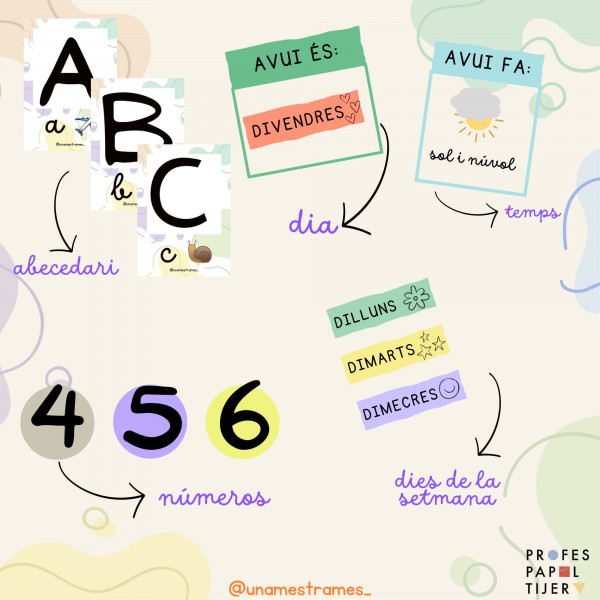 A
a
B
b
@unamestrames_
C
c
@unamestrames_
abecedari
AVUI ÉS:
DIVENDRES
dia
AVUI FA:
sol i núvol
temps
DILLUNS
DIMARTS
DIMECRES
dies de la
setmana
4 5 6
números
@unamestrames_
PROFES
PAPOL
TIJER